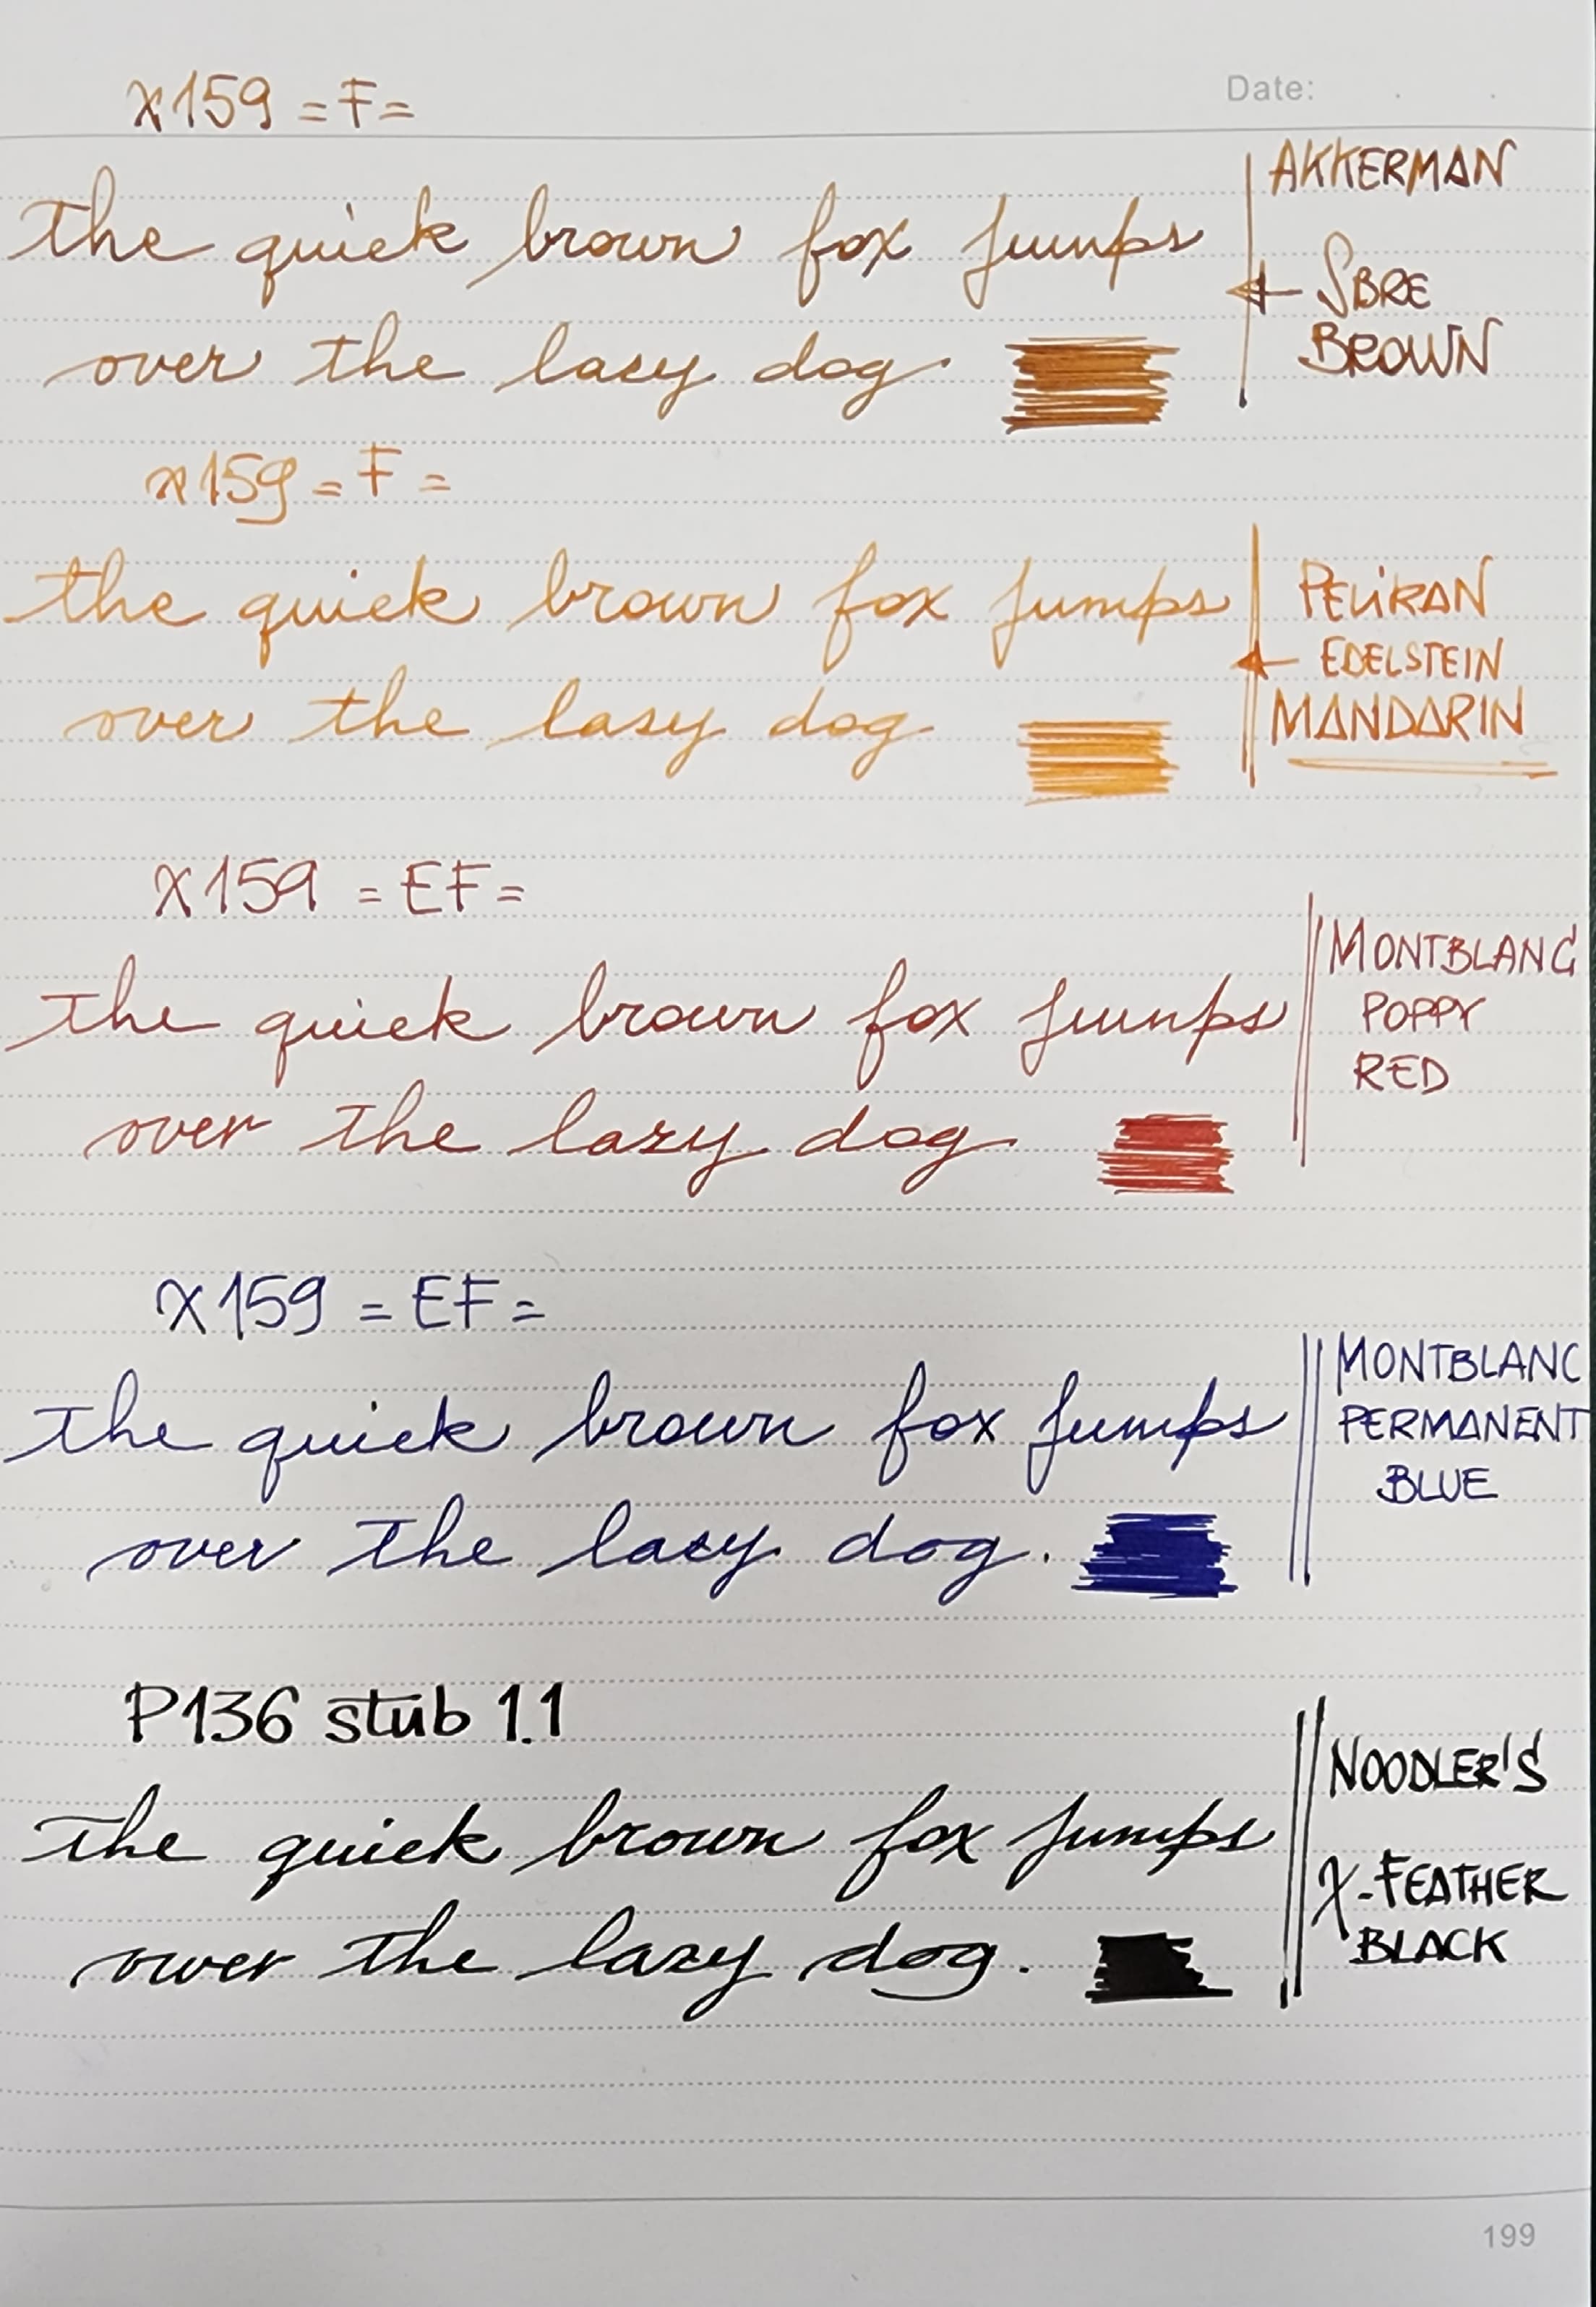 x159 = F =
Date: . .
the quick brown fox jumps
over the lazy dog
AKKERMAN
SBRE
BROWN
x159 = F =
the quick brown fox jumps
over the lazy dog
PELiKAN
EDELSTEIN
MANDARIN
X159 = EF =
the quick brown fox jumps
over the lazy dog
MONTBLANC
POPPY
RED
X159 = EF =
the quick brown fox jumps
over the lazy dog.
MONTBLANC
PERMANENT
BLUE
P136 stub 1.1
the quick brown fox jumps
over the lazy dog.
NOODLER'S
X-FEATHER
BLACK
199